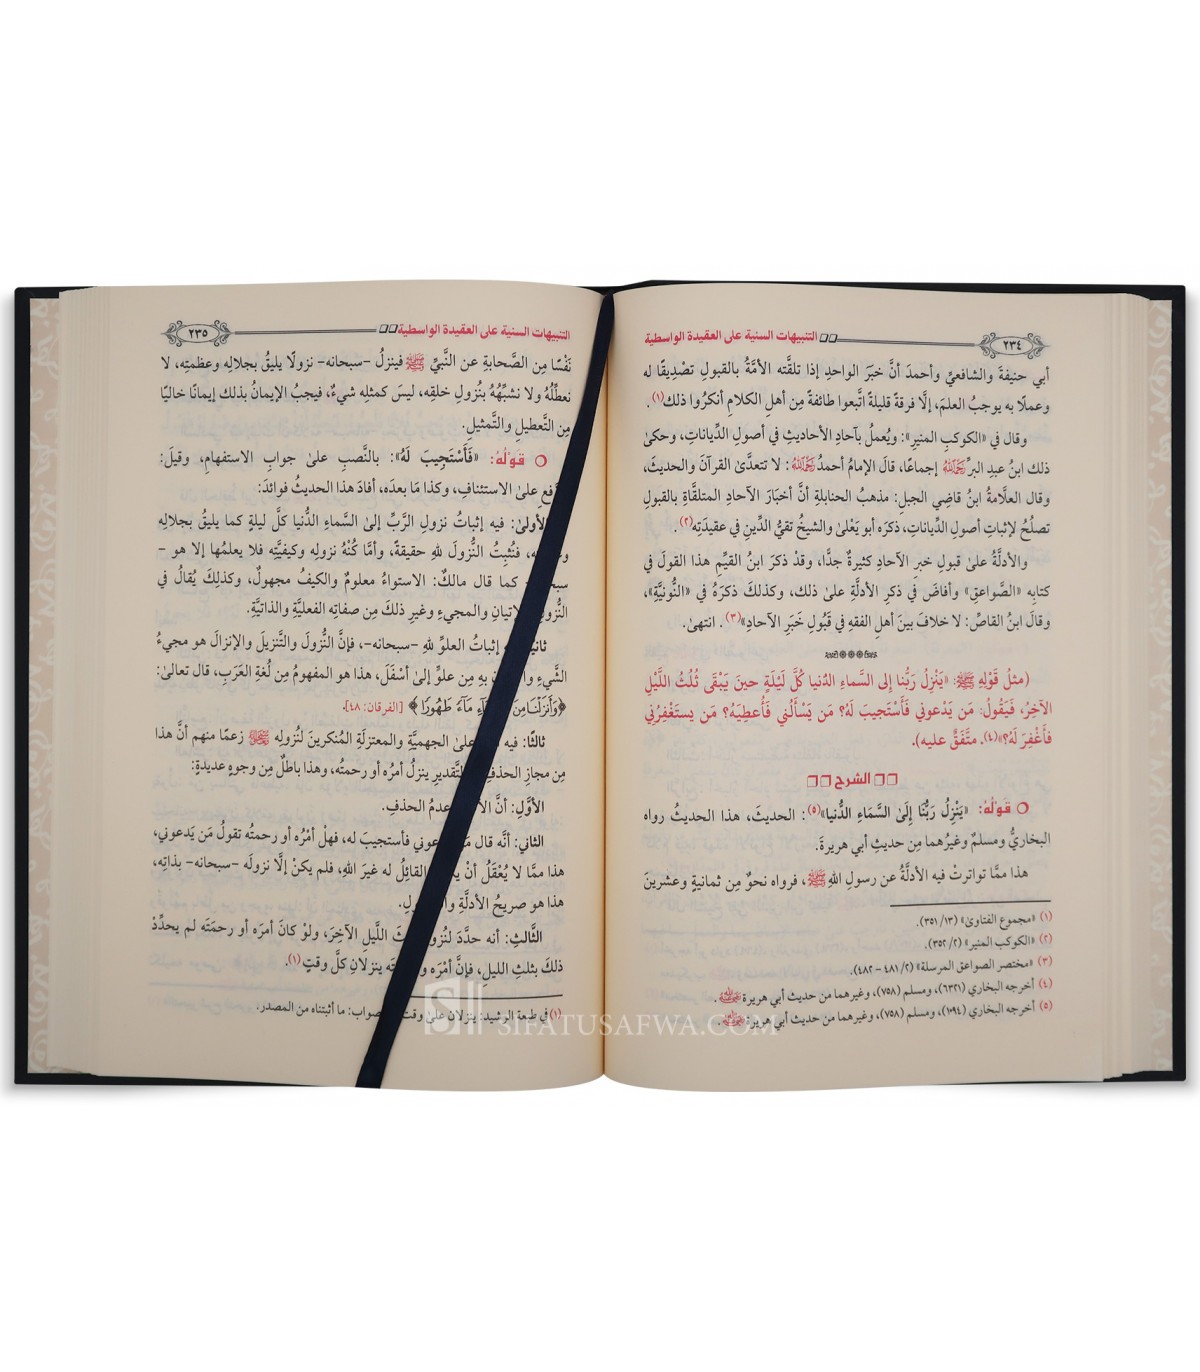 ٢٣٤
التنبيهات السنية على العقيدة الواسطية
أبي حنيفةَ والشافعيِّ وأحمدَ أنَّ خبَرَ الواحدِ إذا تلقَّته الأمَّةُ بالقبولِ تصْدِيقًا له
وعملًا به يوجبُ العلمَ، إلَّا فرقةً قليلةً اتَّبعوا طائفةً مِن أهلِ الكلامِ أنكَروا ذلك(١).
وقال في «الكوكبِ المنيرِ»: ويُعملُ بآحادِ الأحاديثِ في أصولِ الدِّياناتِ، وحكىٰ
ذلك ابنُ عبدِ البرِّ رحمه الله إجماعًا، قالَ الإمامُ أحمدُ رحمه الله: لا نتعدَّىٰ القرآنَ والحديثَ،
وقال العلَّامةُ ابنُ قاضِي الجبلِ: مذهبُ الحنابلةِ أنَّ أخبَارَ الآحادِ المتلقَّاةِ بالقبولِ
تصلُحُ لإثباتِ أصولِ الدِّياناتِ، ذكرَه أبو يَعْلىٰ والشيخُ تقيُّ الدِّينِ في عقيدَتِه(٢).
والأدلَّةُ علىٰ قبولِ خبرِ الآحادِ كثيرةٌ جدًّا، وقدْ ذكرَ ابنُ القيِّمِ هذا القولَ في
كتابِه «الصَّواعقِ» وأفاضَ في ذكرِ الأدلَّةِ علىٰ ذلك، وكذلكَ ذكرَهُ في «النُّونيَّةِ»،
وقالَ ابنُ القاصِّ: لا خلافَ بينَ أهلِ الفقهِ في قَبُولِ خَبَرِ الآحادِ»(٣). انتهىٰ.
(مثلُ قَوْلِهِ ﷺ: «يَنْزِلُ رَبُّنا إلى السَّماءِ الدُنيا كُلَّ لَيْلَةٍ حينَ يَبْقَى ثُلُثُ اللَّيْلِ
الآخِرُ، فَيَقُولُ: مَن يَدعوني فَأَسْتَجيبَ لَهُ؟ مَن يَسْأَلُني فَأُعطِيَهُ؟ مَن يستَغْفِرُني
فَأَغْفِرَ لَهُ؟»(٤). متَّفَقٌ عليه).
الشرح
قَوْلُهُ: «يَنْزِلُ رَبُّنَا إِلَىٰ السَّمَاءِ الدُّنيا»(٥): الحديثَ، هذا الحديثُ رواه
البخاريُّ ومسلمٌ وغيرُهما مِن حديثِ أبي هريرةَ.
هذا ممَّا تواترتْ فيه الأدلَّةُ عن رسولِ اللهِ ﷺ، فرواه نحوٌ مِن ثمانيةٍ وعشرينَ
(١) «مجموع الفتاوىٰ» (١٣/ ٣٥١).
(٢) «الكوكب المنير» (٢/ ٣٥٢).
(٣) «مختصر الصواعق المرسلة» (٢/ ٤٨١ - ٤٨٢).
(٤) أخرجه البخاري (٦٣٢١)، ومسلم (٧٥٨)، وغيرهما من حديث أبي هريرة رضي الله عنه.
(٥) أخرجه البخاري (١٠٩٤)، ومسلم (٧٥٨)، وغيرهما من حديث أبي هريرة رضي الله عنه.
التنبيهات السنية على العقيدة الواسطية
٢٣٥
نَفْسًا مِن الصَّحابةِ عن النَّبيِّ ﷺ فينزلُ -سبحانه- نزولًا يليقُ بجلالِه وعظمتِه، لا
نعطِّلُهُ ولا نشبِّهُهُ بنُزولِ خلقِه، ليسَ كمثلِه شيءٌ، فيجبُ الإيمانُ بذلك إيمانًا خاليًا
مِن التَّعطيلِ والتَّمثيلِ.
قَوْلُهُ: «فَأَسْتَجِيبَ لَهُ»: بالنَّصبِ علىٰ جوابِ الاستفهامِ، وقيلَ:
علىٰ الاستئنافِ، وكذا مَا بعدَه، أفادَ هذا الحديثُ فوائدَ:
الأولىٰ: فيه إثباتُ نزولِ الرَّبِّ إلىٰ السَّماءِ الدُّنيا كلَّ ليلةٍ كما يليقُ بجلالِه
فنُثبِتُ النُّزولَ للهِ حقيقةً، وأمَّا كُنْهُ نزولِه وكيفيَّتِه فلا يعلمُها إلا هو -
كما قال مالكٌ: الاستواءُ معلومٌ والكيفُ مجهولٌ، وكذلكَ يُقالُ في
والمجيءِ وغيرِ ذلكَ مِن صفاتِه الفعليَّةِ والذاتيَّةِ.
إثباتُ العلوِّ للهِ -سبحانه-، فإنَّ النُّزولَ والتَّنزيلَ والإنزالَ هو مجيءُ
الشَّيءِ به مِن علوٍّ إلىٰ أسْفَلَ، هذا هو المفهومُ مِن لُغةِ العَرَبِ، قال تعالىٰ:
﴿وَأَنزَلْنَا مِنَ مَآءً طَهُورًا﴾ [الفرقان: ٤٨].
ثالثًا: فيه علىٰ الجهميَّةِ والمعتزلةِ المُنكرينَ لنُزولِه زعمًا منهم أنَّ هذا
مِن مجازِ الحذفِ التَّقديرِ ينزلُ أمرُه أو رحمتُه، وهذا باطلٌ مِن وجوهٍ عديدةٍ:
الأوَّلِ: أنَّ عدمُ الحذفِ.
الثاني: أنَّه قال فأستجيبَ له، فهلْ أمْرُه أو رحمتُه تقولُ مَن يَدعوني،
هذا ممَّا لا يُعْقَلُ أنْ القائلُ له غيرَ اللهِ، فلم يكنْ إلَّا نزولَه -سبحانه- بذاتِه،
هذا هو صريحُ الأدلَّةِ
الثَّالثِ: أنه حدَّدَ اللَّيلِ الآخِرَ، ولوْ كانَ أمرَه أو رحمَتَه لم يحدِّدْ
ذلكَ بثلثِ الليلِ، فإنَّ أمْرَه ينزلانِ كلَّ وقتٍ(١).
(١) في طبعة الرشيد: ينزلان علىٰ ما أثبتناه من المصدر.
SIFATUSAFWA.COM